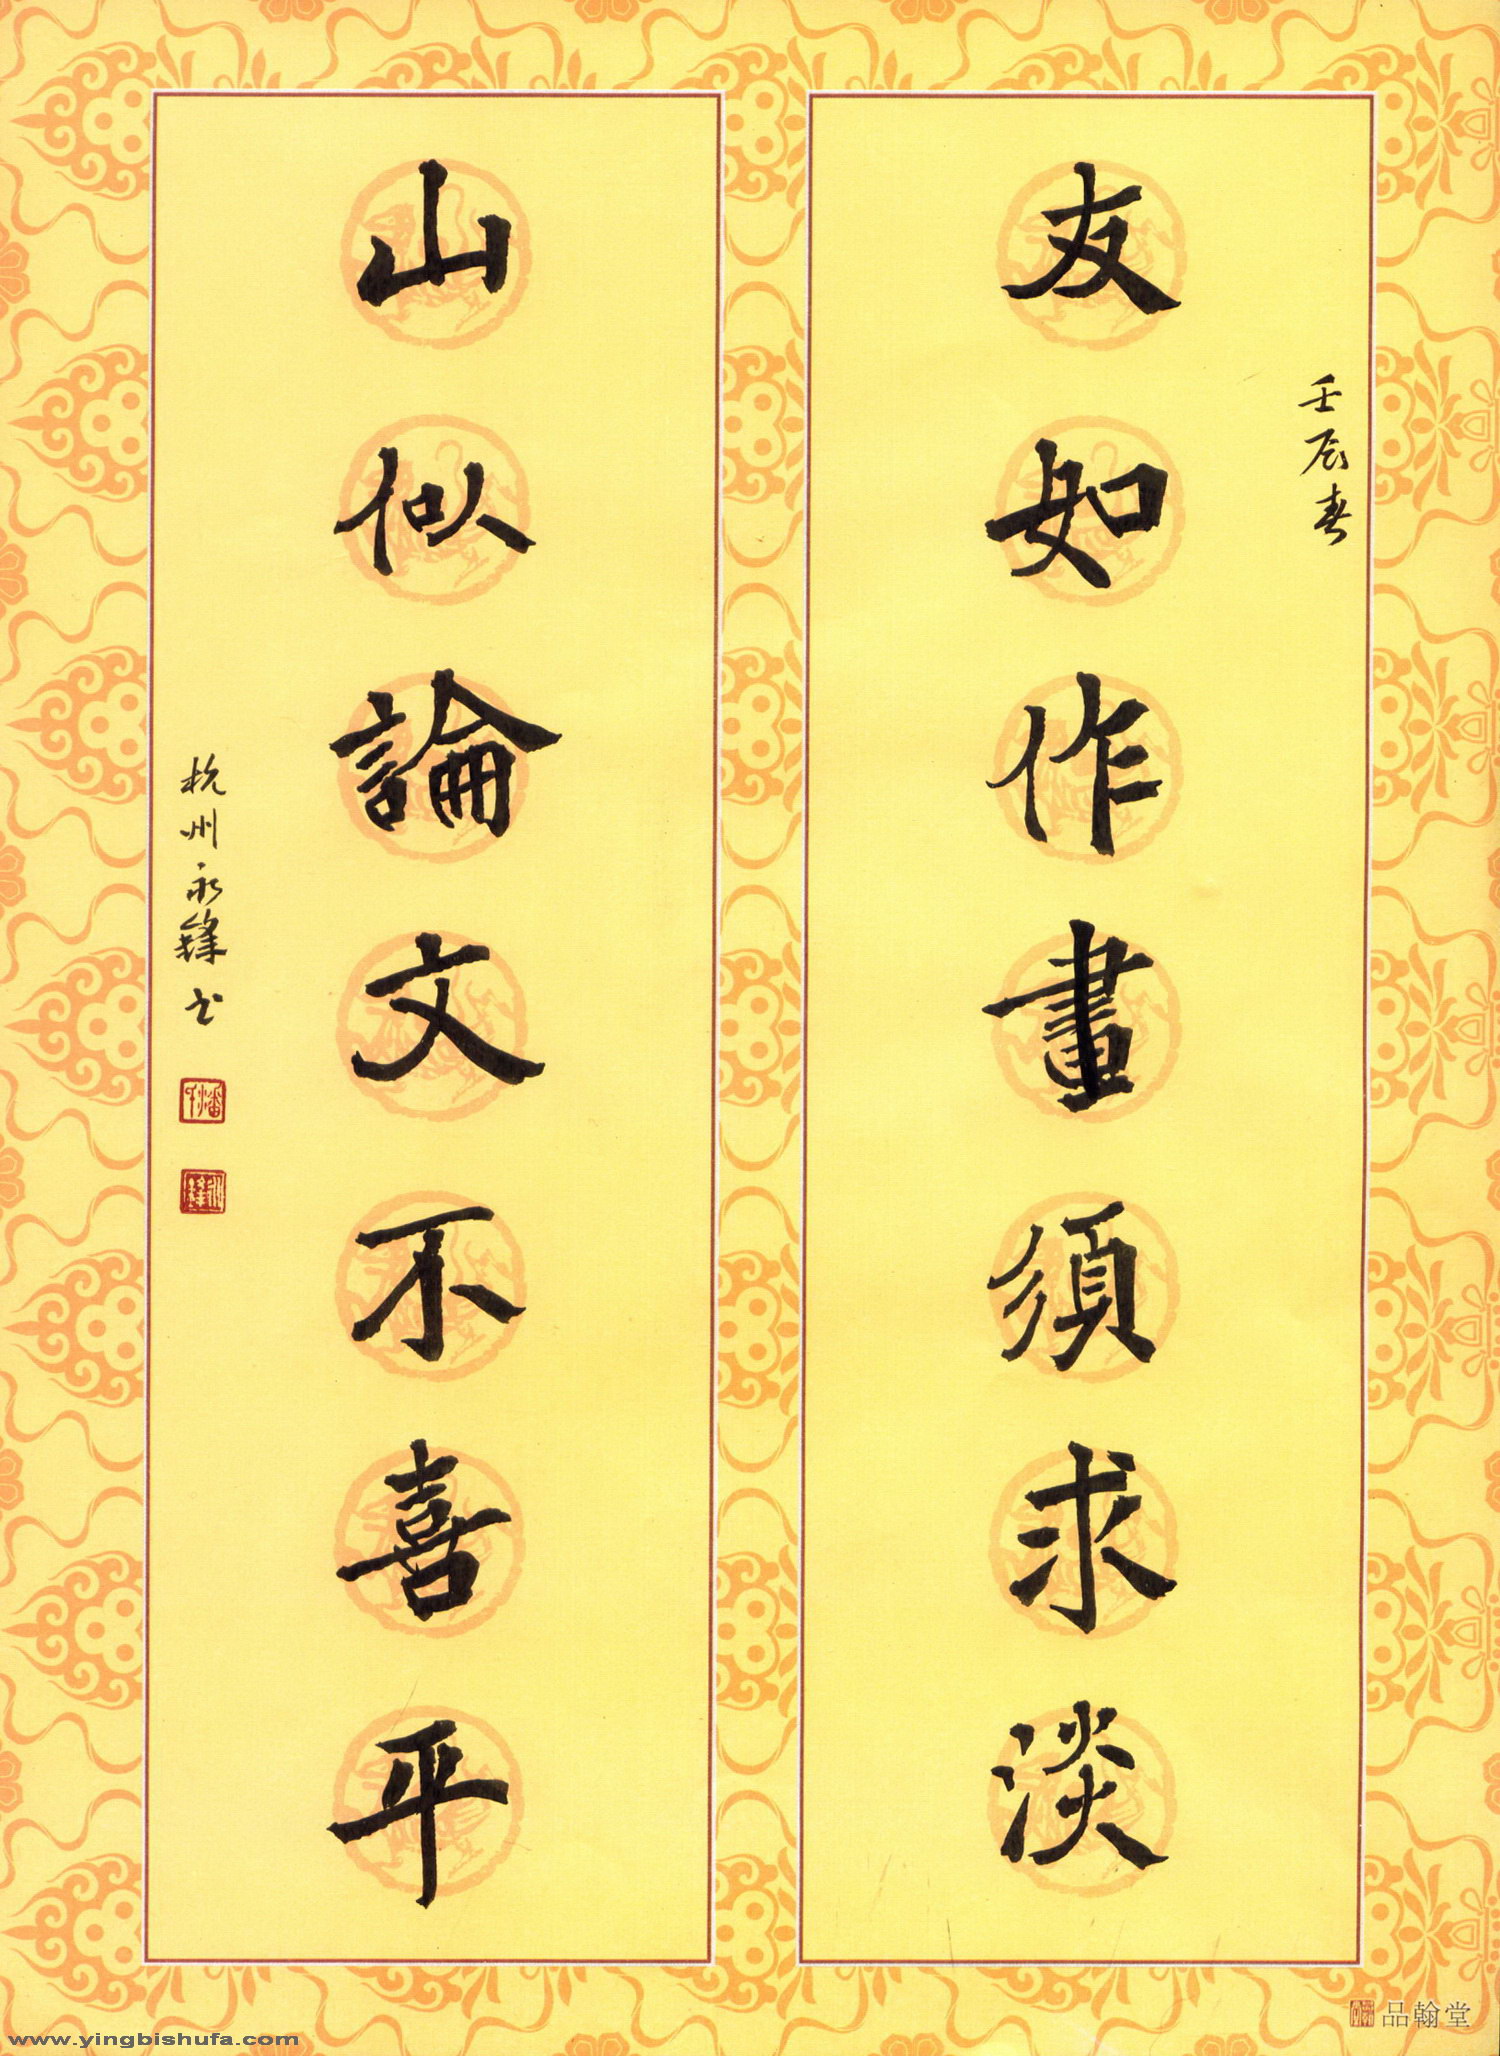 壬辰春
友如作畫須求淡
山似論文不喜平
杭州永鋒书
品翰堂
www.yingbishufa.com